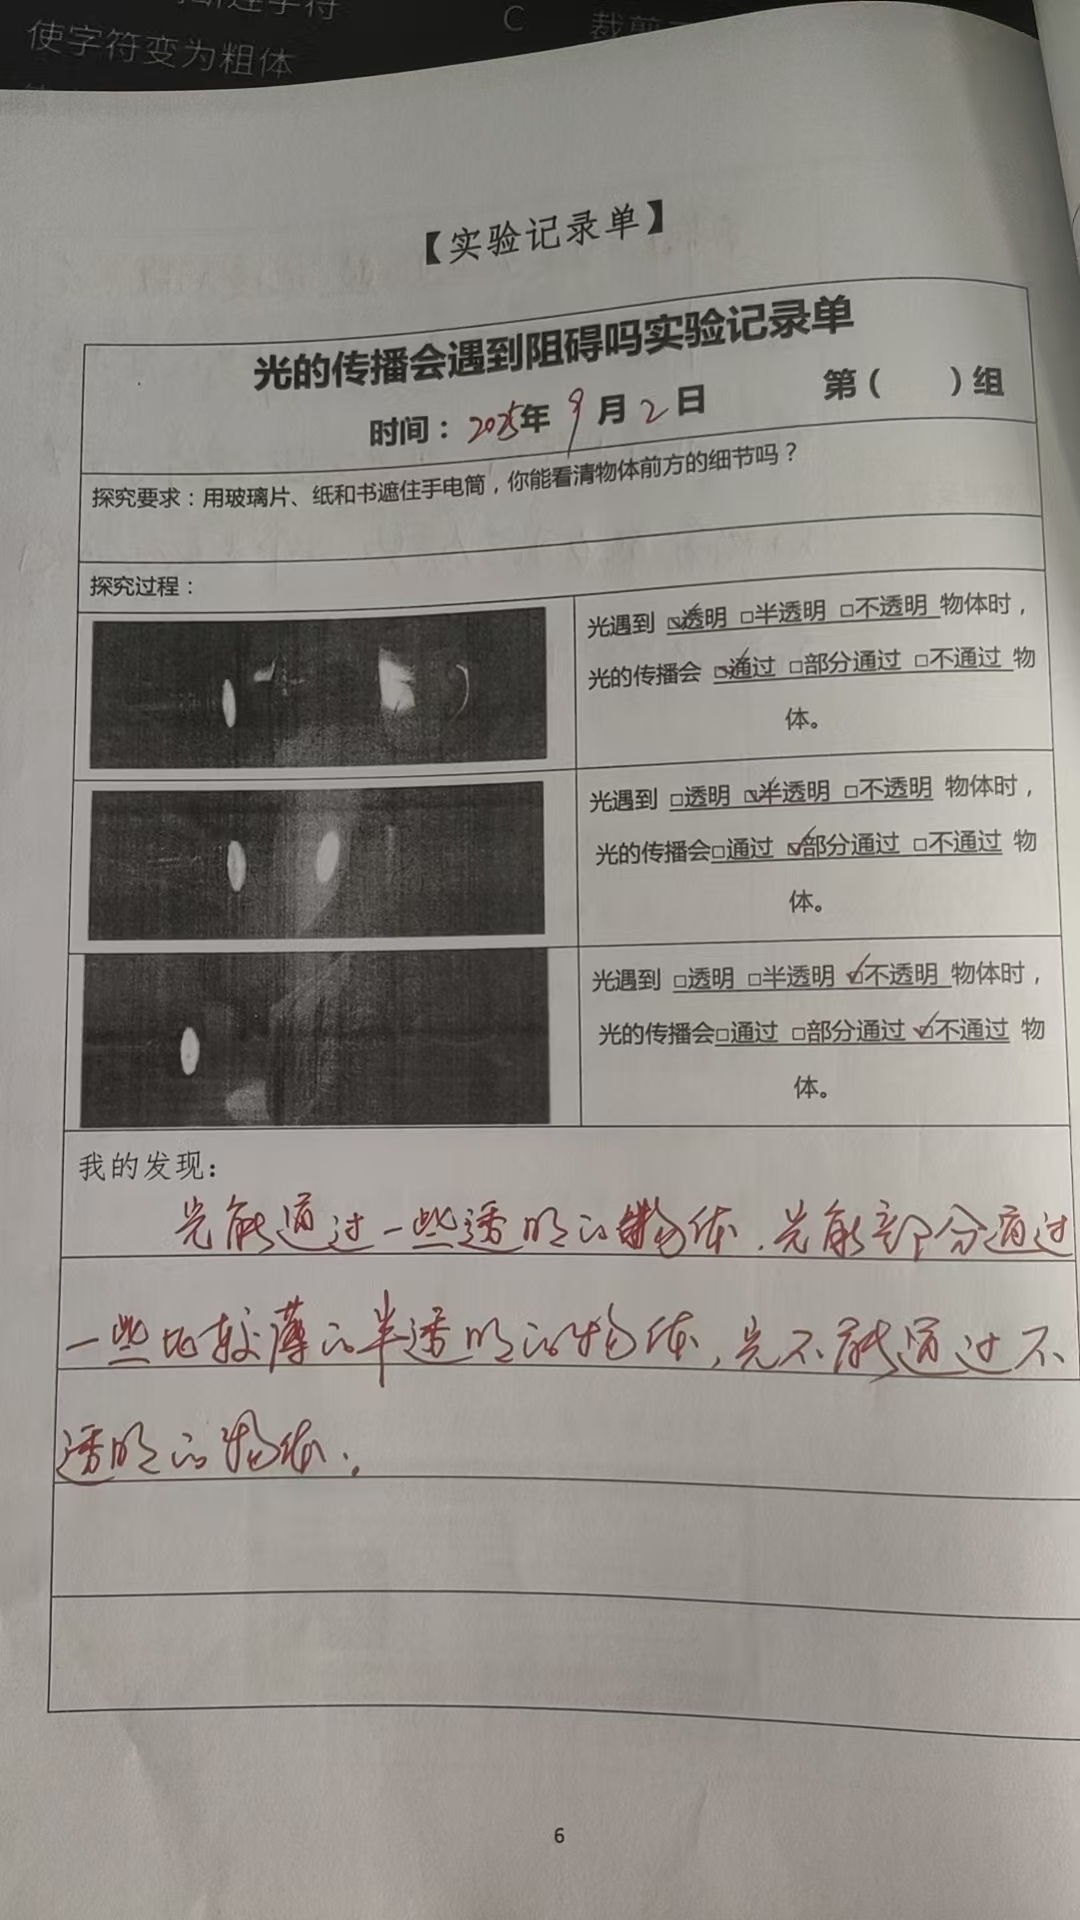 使字符变为粗体
C
裁剪
【实验记录单】
光的传播会遇到阻碍吗实验记录单
时间：2025年9月2日 第（ ）组
探究要求：用玻璃片、纸和书遮住手电筒，你能看清物体前方的细节吗？
探究过程：
光遇到 ☑透明 □半透明 □不透明 物体时，
光的传播会 ☑通过 □部分通过 □不通过 物
体。
光遇到 □透明 ☑半透明 □不透明 物体时，
光的传播会□通过 ☑部分通过 □不通过 物
体。
光遇到 □透明 □半透明 ☑不透明 物体时，
光的传播会□通过 □部分通过 ☑不通过 物
体。
我的发现：
光能通过一些透明的物体，光能部分通过
一些比较薄的半透明的物体，光不能通过不
透明的物体。
6